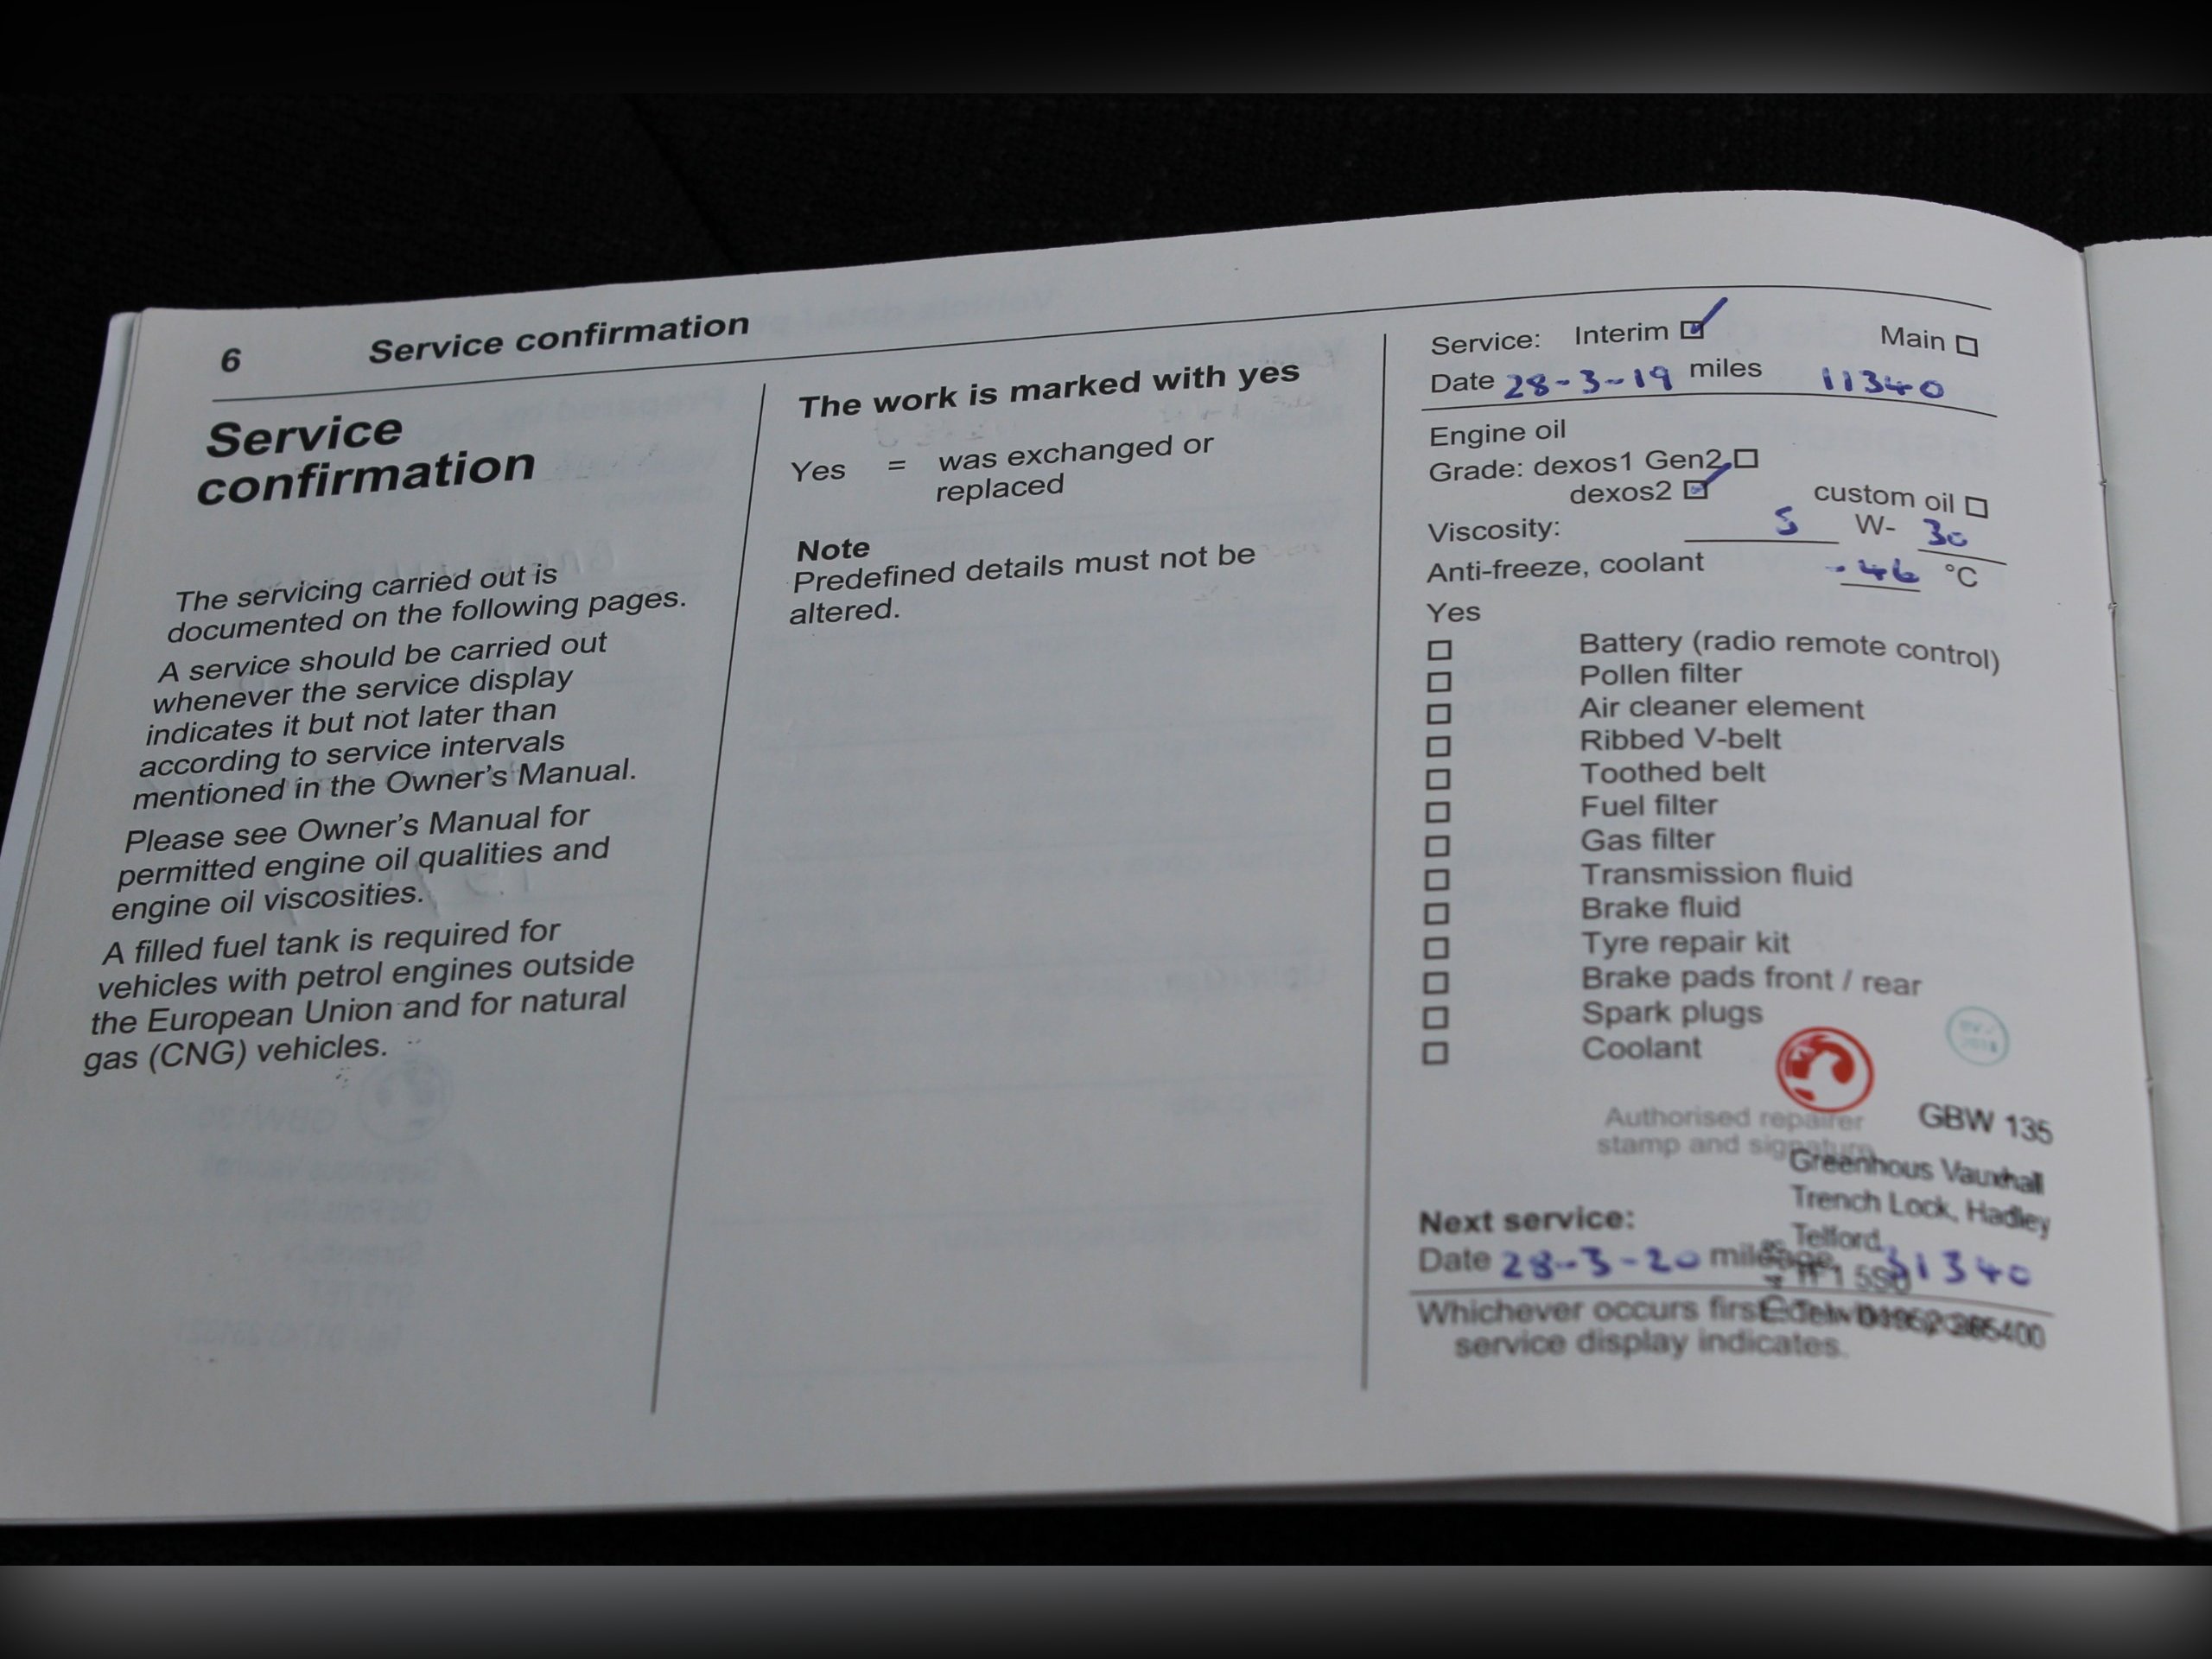 6 Service confirmation
Service
confirmation
The servicing carried out is
documented on the following pages.
A service should be carried out
whenever the service display
indicates it but not later than
according to service intervals
mentioned in the Owner's Manual.
Please see Owner's Manual for
permitted engine oil qualities and
engine oil viscosities.
A filled fuel tank is required for
vehicles with petrol engines outside
the European Union and for natural
gas (CNG) vehicles.
The work is marked with yes
Yes = was exchanged or
replaced
Note
Predefined details must not be
altered.
Service: Interim Main
Date 28-3-19 miles 11340
Engine oil
Grade: dexos1 Gen2
dexos2 custom oil
Viscosity: 5 W- 30
Anti-freeze, coolant -46 °C
Yes
Battery (radio remote control)
Pollen filter
Air cleaner element
Ribbed V-belt
Toothed belt
Fuel filter
Gas filter
Transmission fluid
Brake fluid
Tyre repair kit
Brake pads front / rear
Spark plugs
Coolant
Authorised repairer
stamp and signature
GBW 135
Greenhous Vauxhall
Trench Lock, Hadley
Telford
Next service:
Date 28-3-20 mileage 31340
Whichever occurs first
service display indicates.